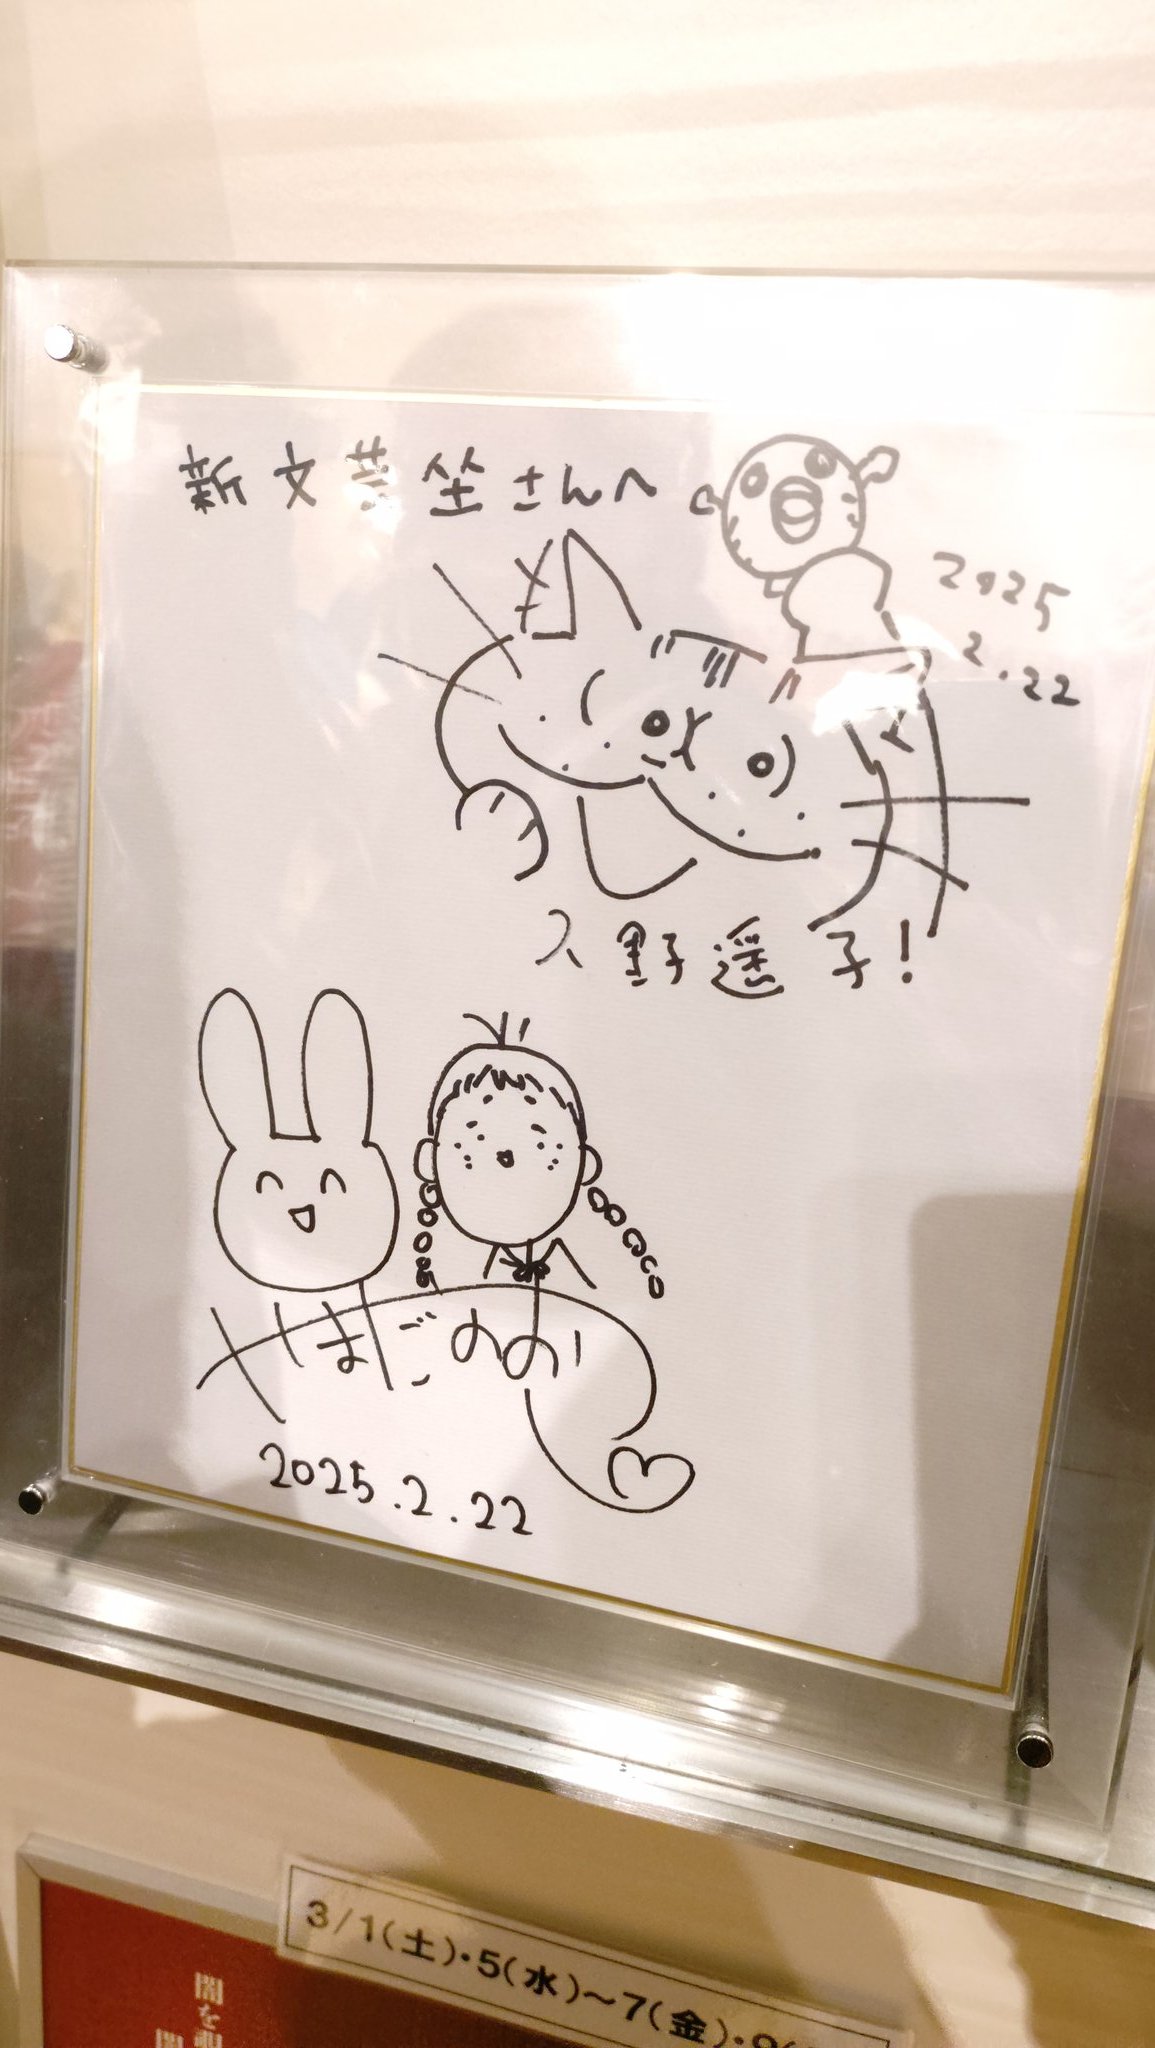 新文芸坐さんへ
2025
2.22
久野遥子!
やまごのの
2025.2.22
3/1(土)・5(水)~7(金)・9(
闇を